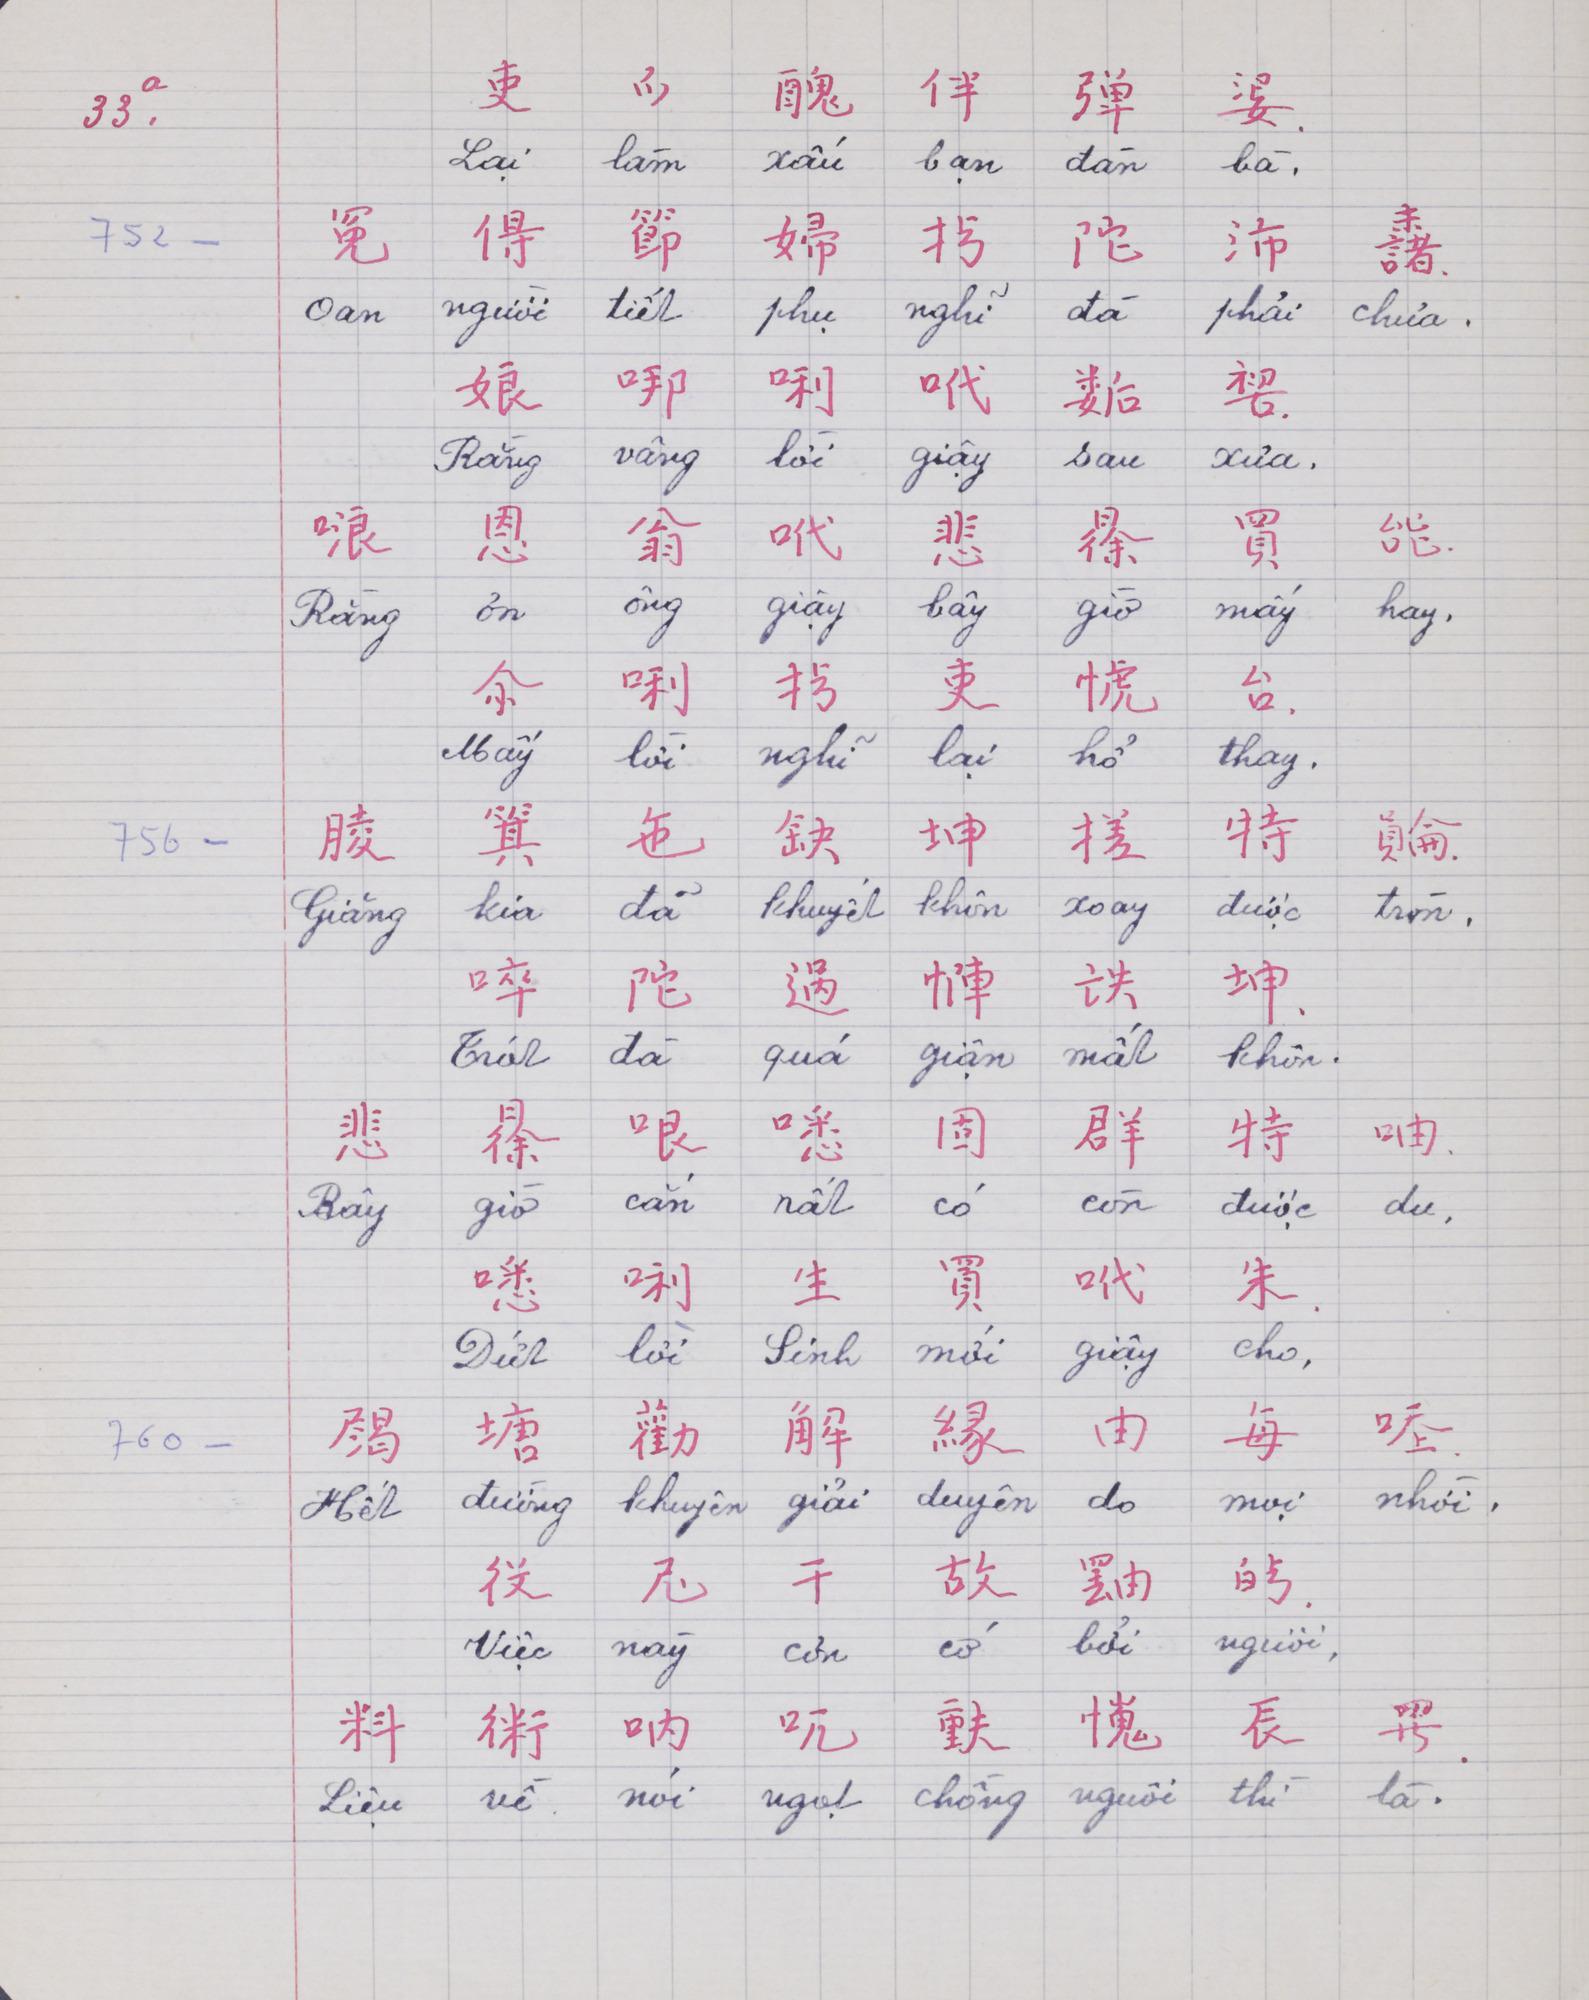 33a.
吏 𪜀 醜 伴 弹 婆.
Lại làm xấu bạn đàn bà.
752 — 冤 得 節 婦 𢪀 陀 沛 𣗓.
Oan người tiết phụ nghĩ đà phải chửa.
娘 哪 唎 𠰺 𡢐 𥛭.
Rằng vâng lời giậy sau xưa.
㖫 恩 翁 𠰺 悲 𣇞 買 能.
Rằng ơn ông giậy bây giờ mấy hay.
尒 唎 𢪀 吏 㦆 台.
Mấy lời nghĩ lại hổ thay.
756 — 𦝄 箕 㐌 缺 坤 搓 特 𧷺.
Giăng kia đã khuyết khôn xoay được tròn.
啐 陀 過 惲 𡗋 坤.
Trót đà quá giận mất khôn.
悲 𣇞 哏 𠲟 固 群 特 㕀.
Bây giờ cắn nất có còn được du.
𠲟 唎 生 買 𠰺 朱.
Dứt lời Sinh mới giậy cho,
760 — 歇 塘 勸 解 緣 由 每 𠳒.
Hết đường khuyên giải duyên do mọi nhời.
役 尼 干 故 𤳸 𠊛.
Việc này cơn cớ bởi người,
料 術 吶 𠯪 𫯳 愧 𠀧 羅.
Liệu về nói ngọt chồng người thì là.